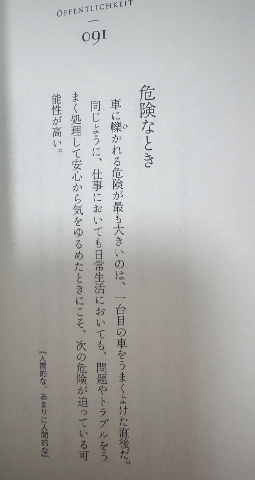 ÖFFENTLICHKEIT
091
危険なとき
車に轢かれる危険が最も大きいのは、一台目の車をうまくよけた直後だ。
同じように、仕事においても日常生活においても、問題やトラブルをう
まく処理して安心から気をゆるめたときにこそ、次の危険が迫っている可
能性が高い。
『人間的な、あまりに人間的な』